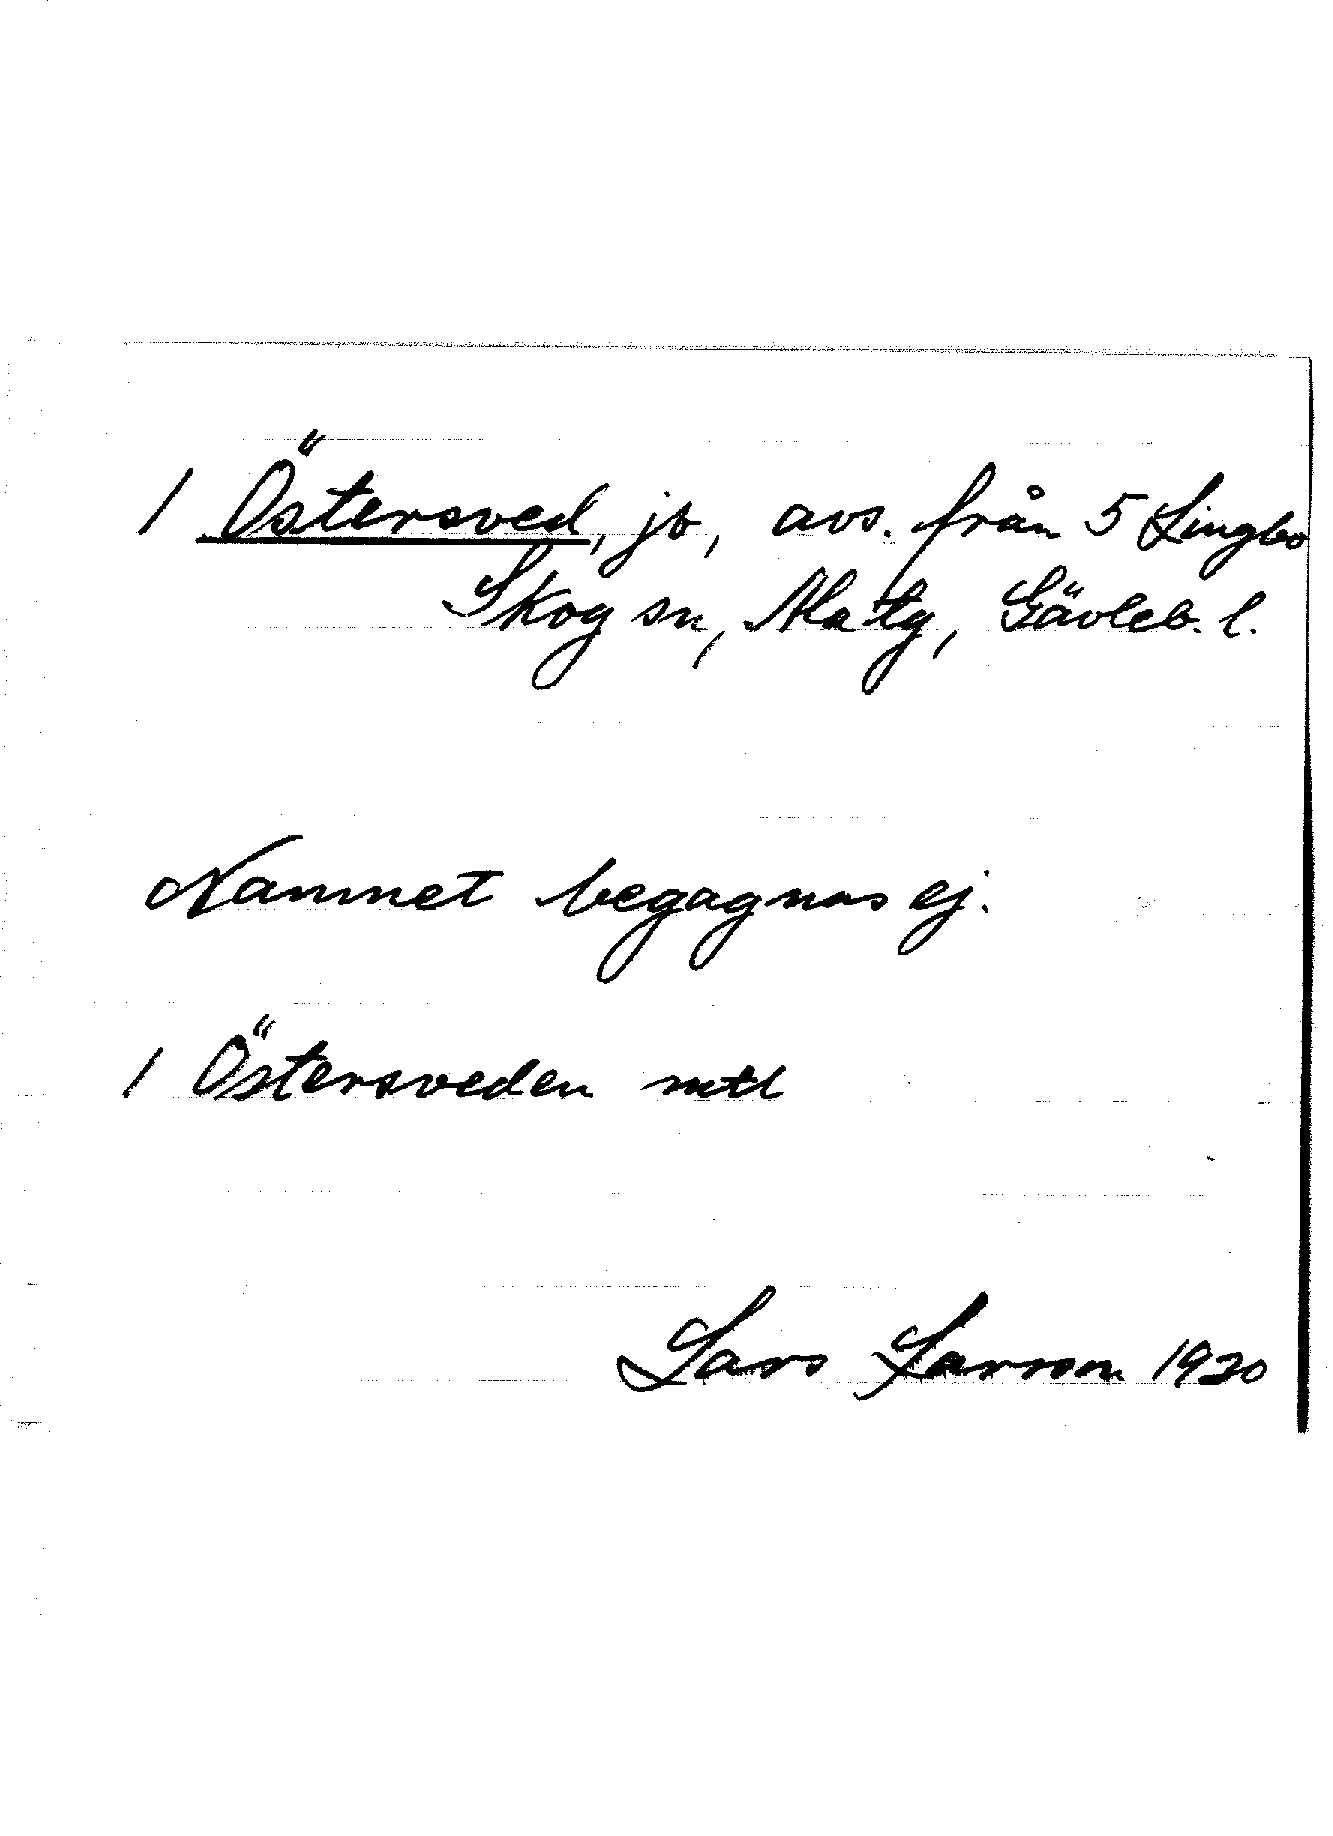 1 Östersved, jb, avs. från 5 Lingbo
Skog sn, Ala tg, Gävleb. l.
Namnet begagnas ej.
1 Östersveden mtl
Lars Larson 1930